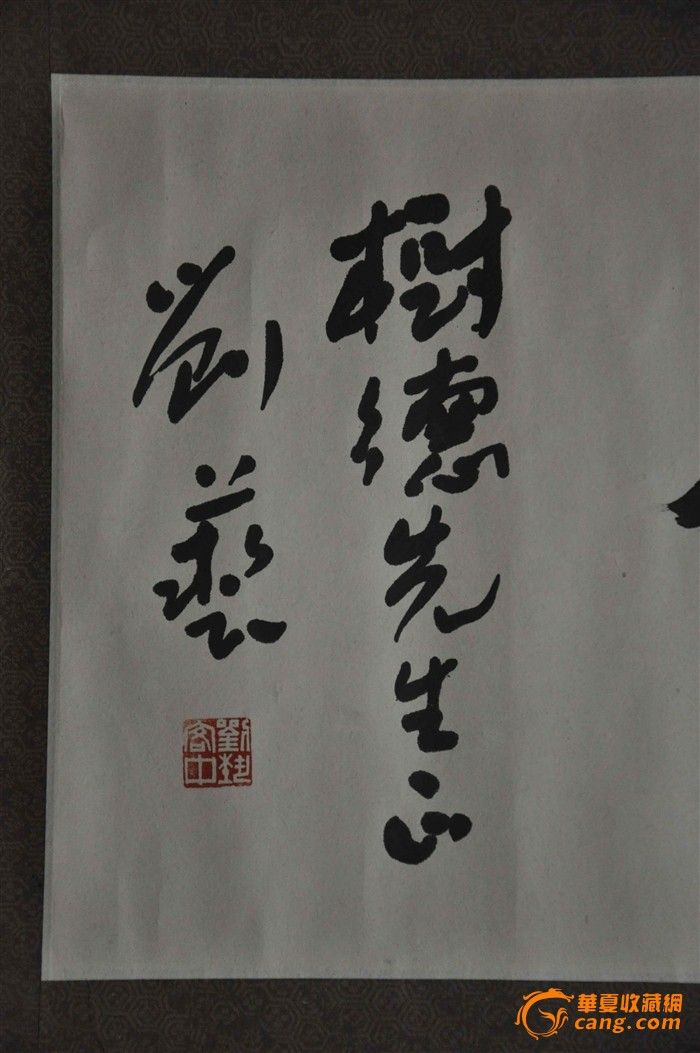 樹德先生正
劉藝
劉藝
客中
華夏收藏網
cang.com